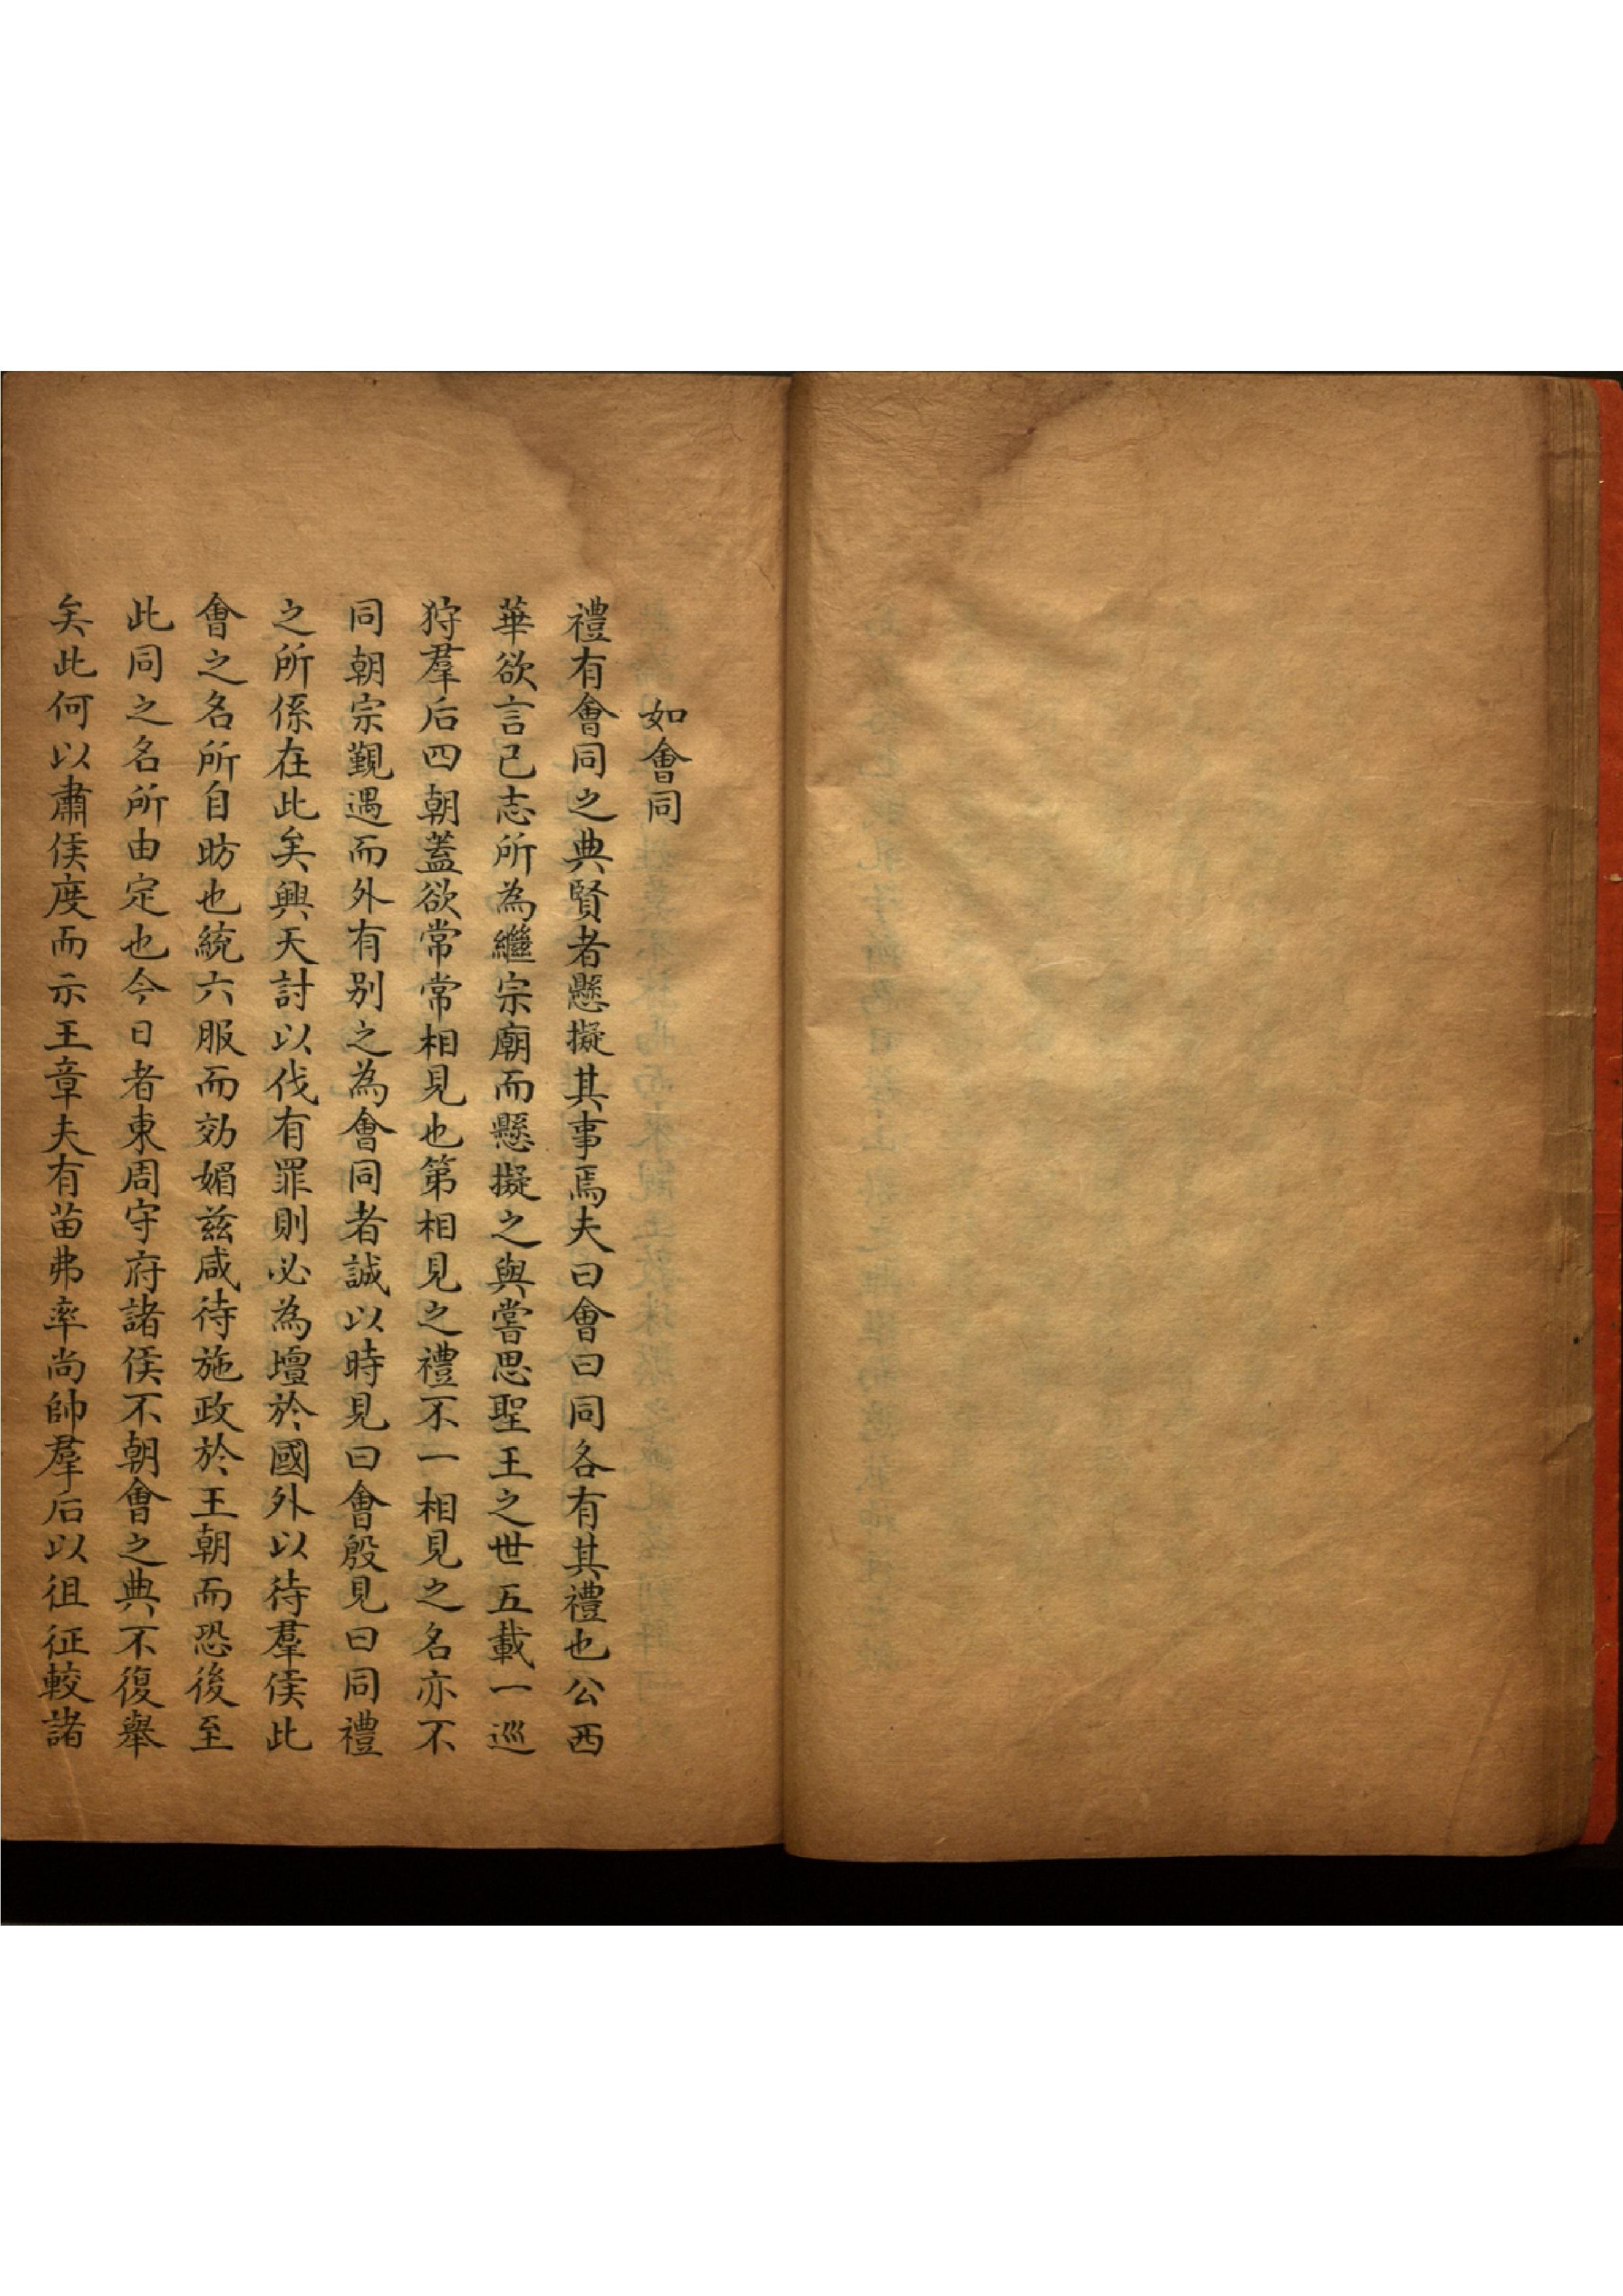 如會同
禮有會同之典賢者懸擬其事焉夫曰會曰同各有其禮也公西
華欲言己志所為繼宗廟而懸擬之與嘗思聖王之世五載一巡
狩羣后四朝蓋欲常常相見也第相見之禮不一相見之名亦不
同朝宗覲遇而外有別之為會同者誠以時見曰會殷見曰同禮
之所係在此矣興天討以伐有罪則必為壇於國外以待羣侯此
會之名所自昉也統六服而効媚兹咸待施政於王朝而恐後至
此同之名所由定也今日者東周守府諸侯不朝會之典不復舉
矣此何以肅侯度而示王章夫有苗弗率尚帥羣后以徂征較諸